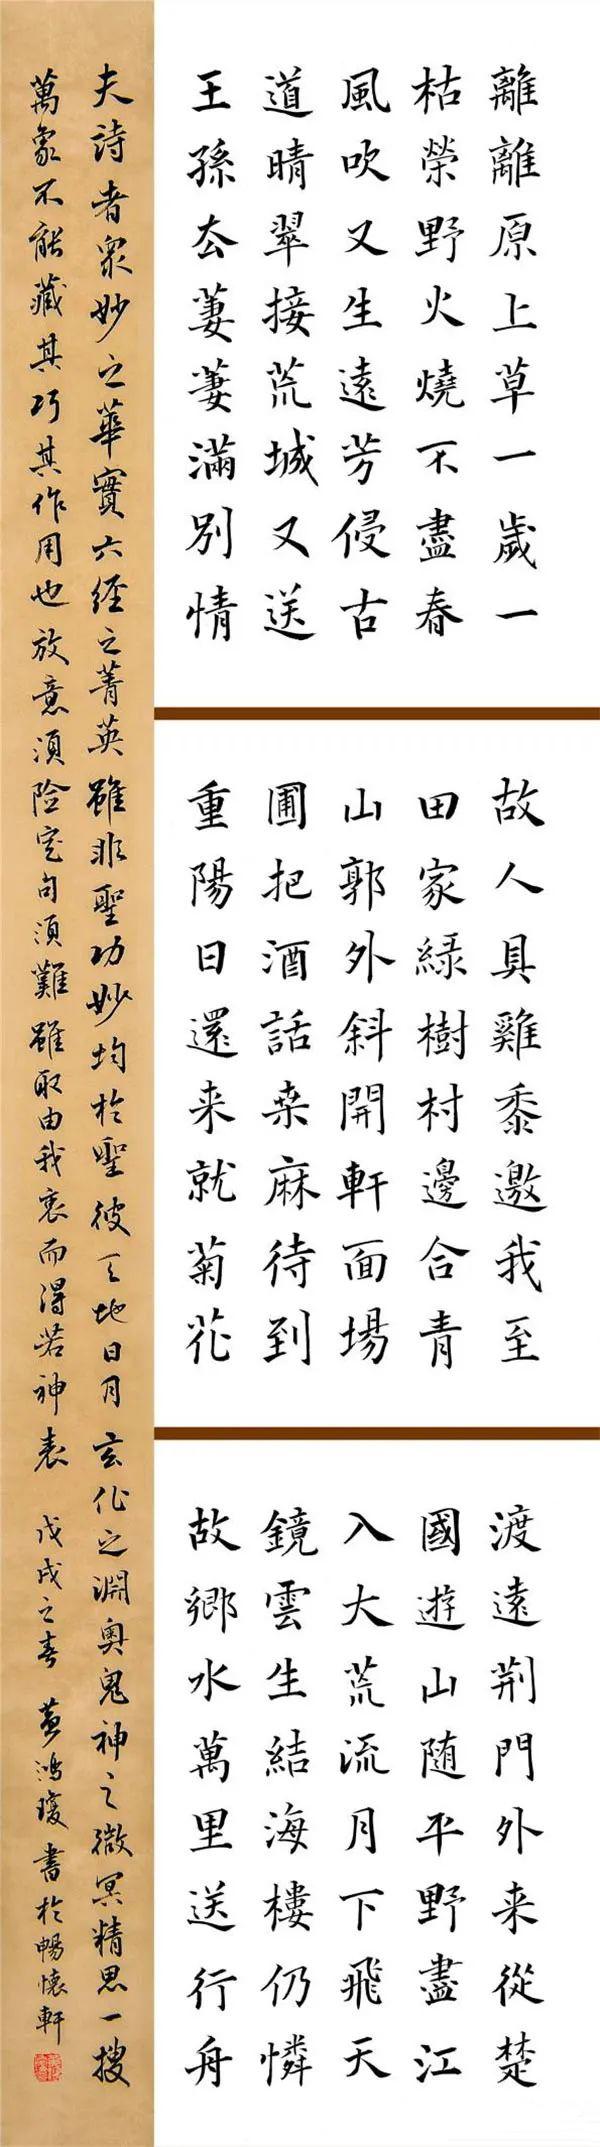 離離原上草一歲一
枯榮野火燒不盡春
風吹又生遠芳侵古
道晴翠接荒城又送
王孫去萋萋滿別情
故人具雞黍邀我至
田家綠樹村邊合青
山郭外斜開軒面場
圃把酒話桒麻待到
重陽日還来就菊花
渡遠荆門外来從楚
國遊山随平野盡江
入大荒流月下飛天
鏡雲生結海樓仍憐
故鄉水萬里送行舟
夫詩者眾妙之華實六經之菁英雖非聖功妙均於聖彼天地日月玄化之淵奧鬼神之微冥精思一搜
萬象不能藏其巧其作用也放意須险定句須難雖取由我衷而得若神表 戊戌之春 黃鴻瓊書於暢懷軒